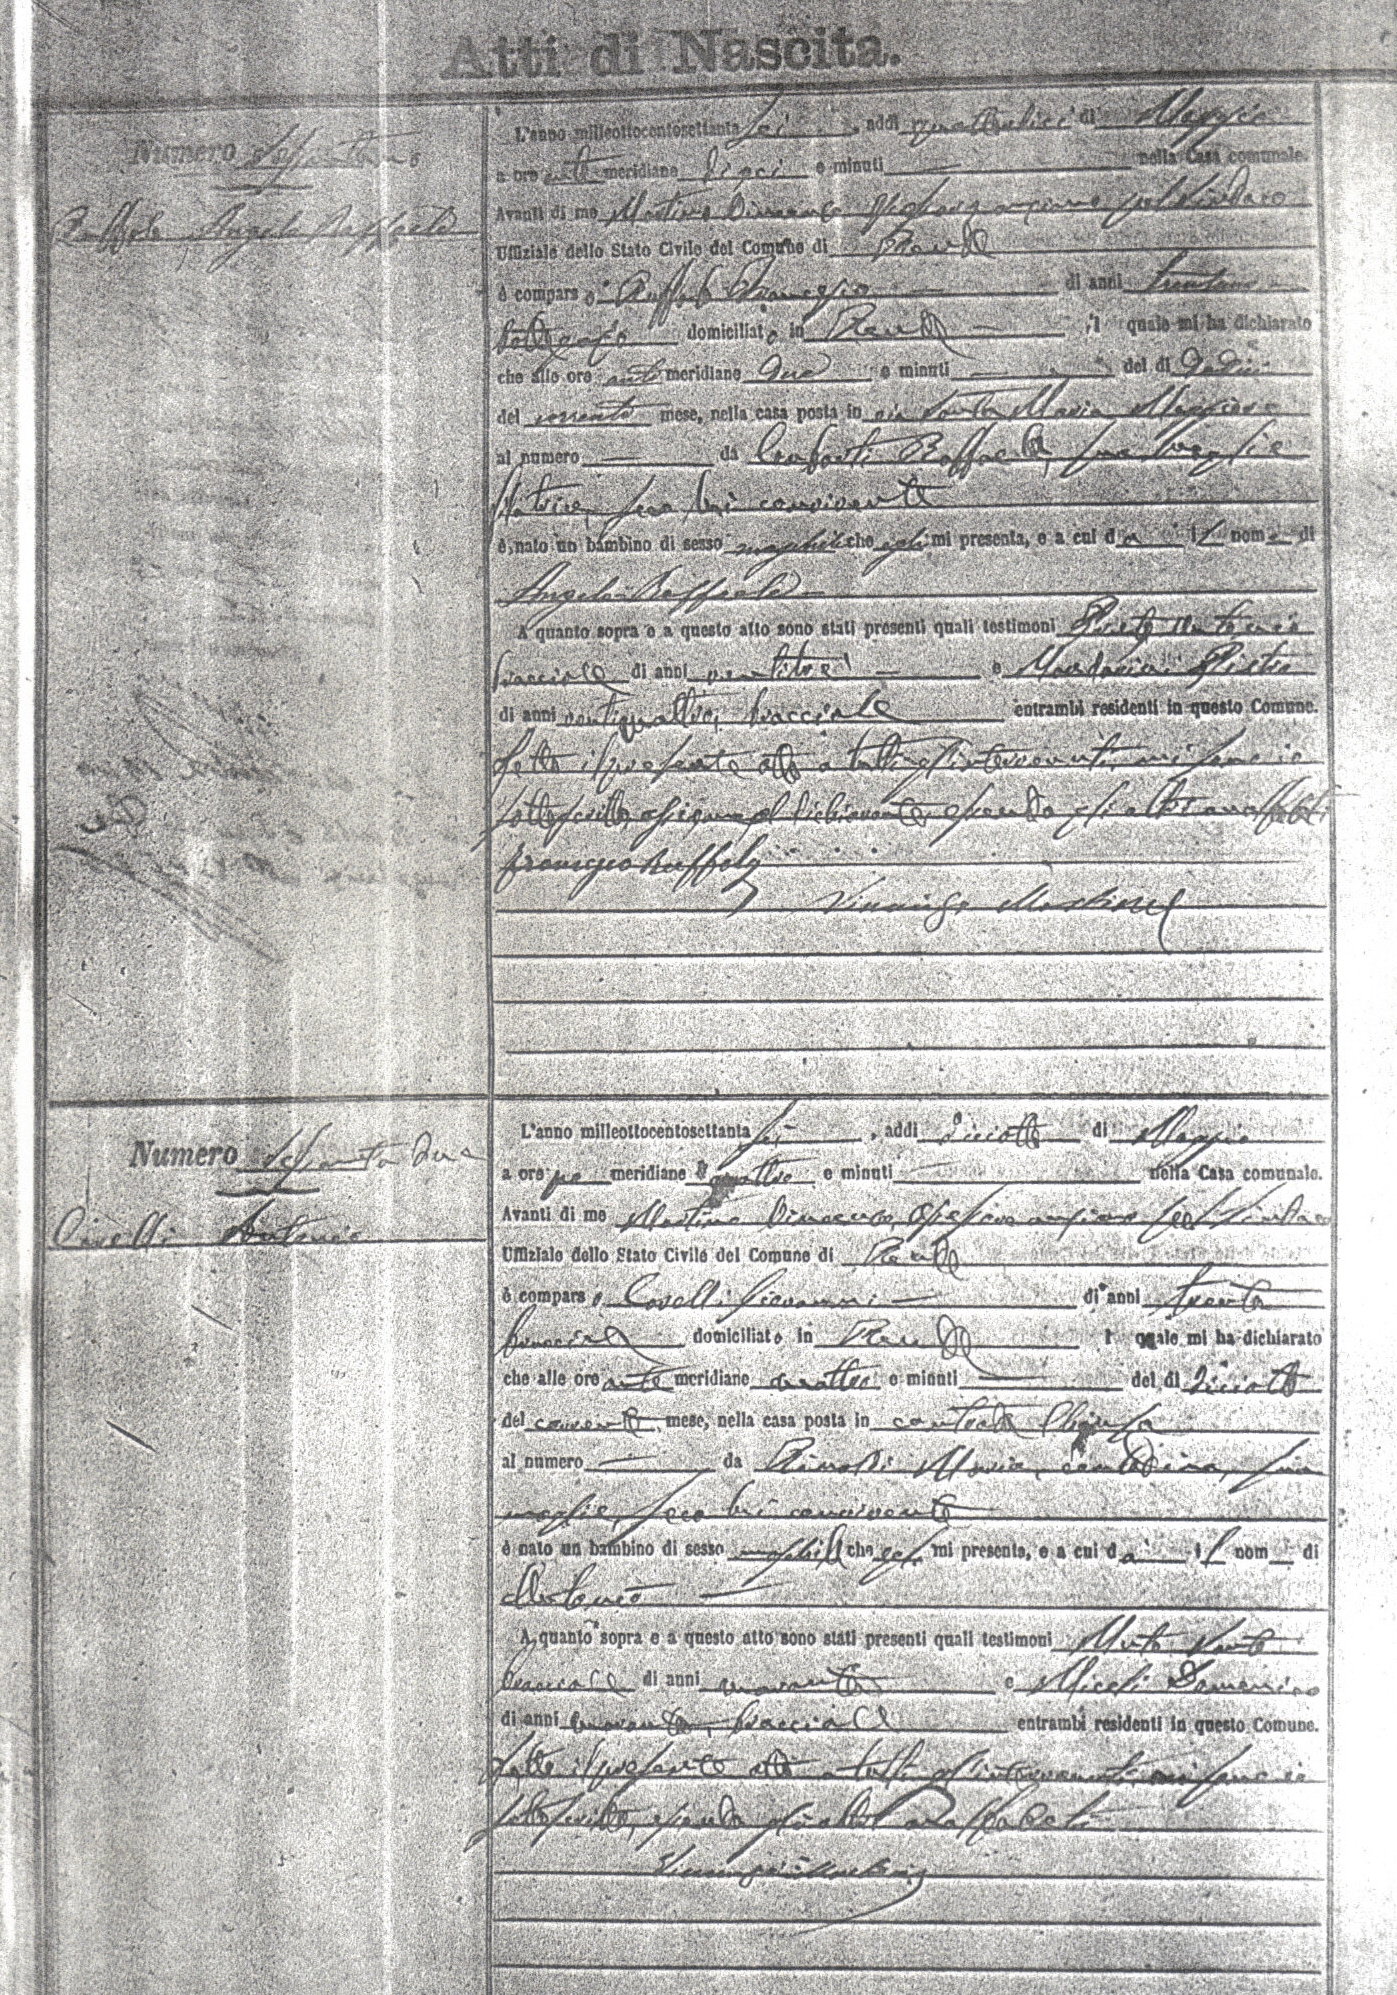 Atti di Nascita.
Numero sessantuno
Ruffolo Angelo Raffaele
L'anno milleottocentosettanta sei, addì quattordici di Maggio
a ore anti meridiane dieci e minuti — nella Casa comunale.
Avanti di me Martino Vincenzo Assessore anziano pel Sindaco
Uffiziale dello Stato Civile del Comune di Rende
è comparso Ruffolo Francesco — di anni
domiciliato in Rende — , il quale mi ha dichiarato
che alle ore anti meridiane due e minuti — del dì dodici
del corrente mese, nella casa posta in via Santa Maria Maggiore
al numero — da Conforti Raffaela, sua moglie
seco lui convivente
è nato un bambino di sesso maschile che egli mi presenta, e a cui dà il nome di
Angelo Raffaele —
A quanto sopra e a questo atto sono stati presenti quali testimoni Antonio
bracciale di anni ventitre — e Pietro
di anni ventiquattro, bracciale entrambi residenti in questo Comune.
Letto il presente atto a tutti gl'intervenuti, mi sono io
sottoscritto, assieme al dichiarante, essendo gli altri analfabeti
Francesco Ruffolo
Vincenzo Martino
Numero sessantadue
Covelli Antonio
L'anno milleottocentosettanta sei, addì diciotto di Maggio
a ore po meridiane quattro e minuti — nella Casa comunale.
Avanti di me Martino Vincenzo, Assessore anziano pel Sindaco
Uffiziale dello Stato Civile del Comune di Rende
è comparso Covelli Giovanni — di anni trenta
bracciale domiciliato in Rende — il quale mi ha dichiarato
che alle ore ante meridiane quattro e minuti — del dì diciotto
del corrente mese, nella casa posta in contrada
al numero — da Maria, contadina, sua
moglie, seco lui convivente
è nato un bambino di sesso maschile che egli mi presenta, e a cui dà il nome di
Antonio —
A quanto sopra e a questo atto sono stati presenti quali testimoni
bracciale di anni e Miceli Domenico
di anni bracciale entrambi residenti in questo Comune.
Letto il presente atto a tutti gl'intervenuti mi sono io
sottoscritto, essendo gli altri analfabeti
Vincenzo Martino